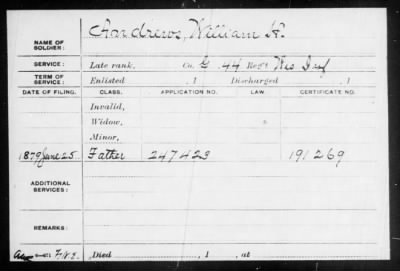 Andrews, William H.
NAME OF SOLDIER:
SERVICE: Late rank, Co. G, 44 Reg't Wis Inf
TERM OF SERVICE: Enlisted , 1 Discharged , 1
DATE OF FILING. CLASS. APPLICATION NO. LAW. CERTIFICATE NO.
Invalid,
Widow,
Minor,
1879 June 25 Father 247423 191269
ADDITIONAL SERVICES:
REMARKS:
Died , 1 , at